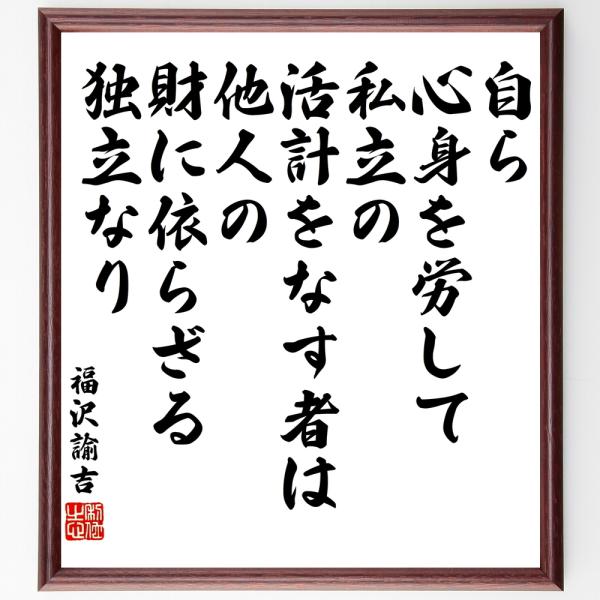 自ら
心身を労して
私立の
活計をなす者は
他人の
財に依らざる
独立なり
福沢諭吉